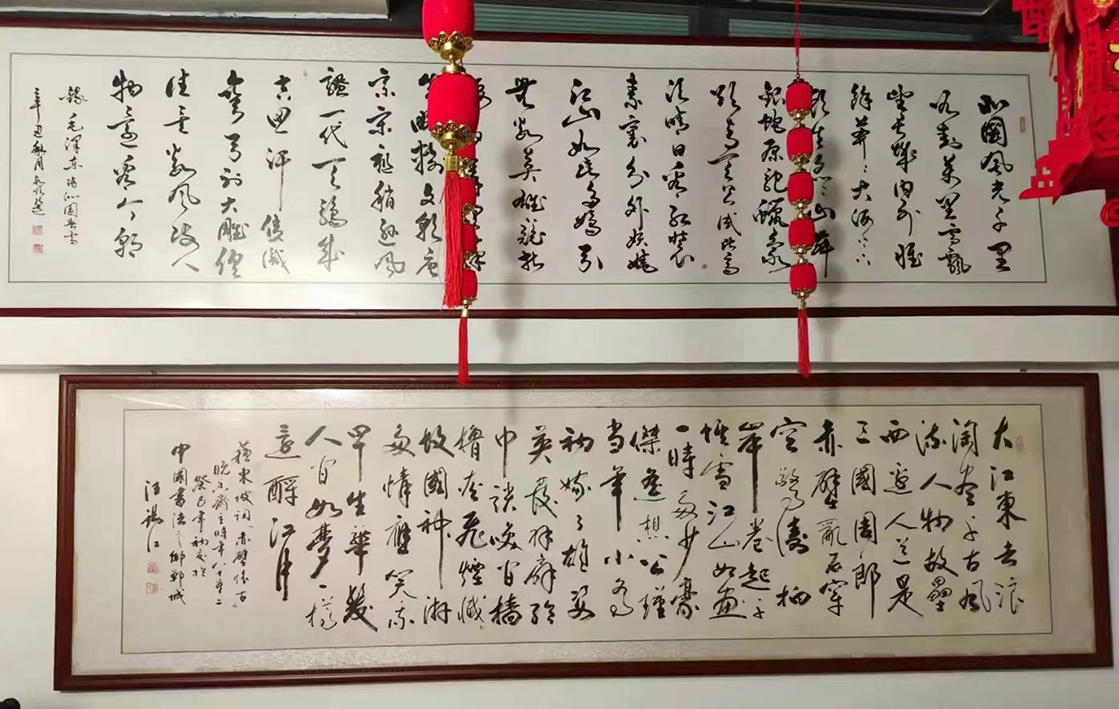 北國風光千里
冰封萬里雪飄
望長城内外惟
餘莽莽大河上下
頓失滔滔山舞
銀蛇原馳蠟象
欲與天公試比高
須晴日看紅裝
素裹分外妖嬈
江山如此多嬌引
無數英雄競折
略輸文采唐
宗宋祖稍遜風
騷一代天驕成
吉思汗隻識
彎弓射大雕俱
往矣數風流人
物還看今朝
錄毛澤東詩沁園春雪
辛丑
大江東去浪
淘盡千古風
流人物故壘
西邊人道是
三國周郎
赤壁亂石穿
空驚濤拍
岸卷起千
堆雪江山如畫
一時多少豪
傑遥想公瑾
當年小喬
初嫁了雄姿
英發羽扇綸
巾談笑間檣
櫓灰飛煙滅
故國神游
多情應笑我
早生華髮
人間如夢一樽
還酹江月
蘇東坡詞赤壁懷古
齋主時年八十二
癸巳年初夏於
中國書法之鄉鄆城